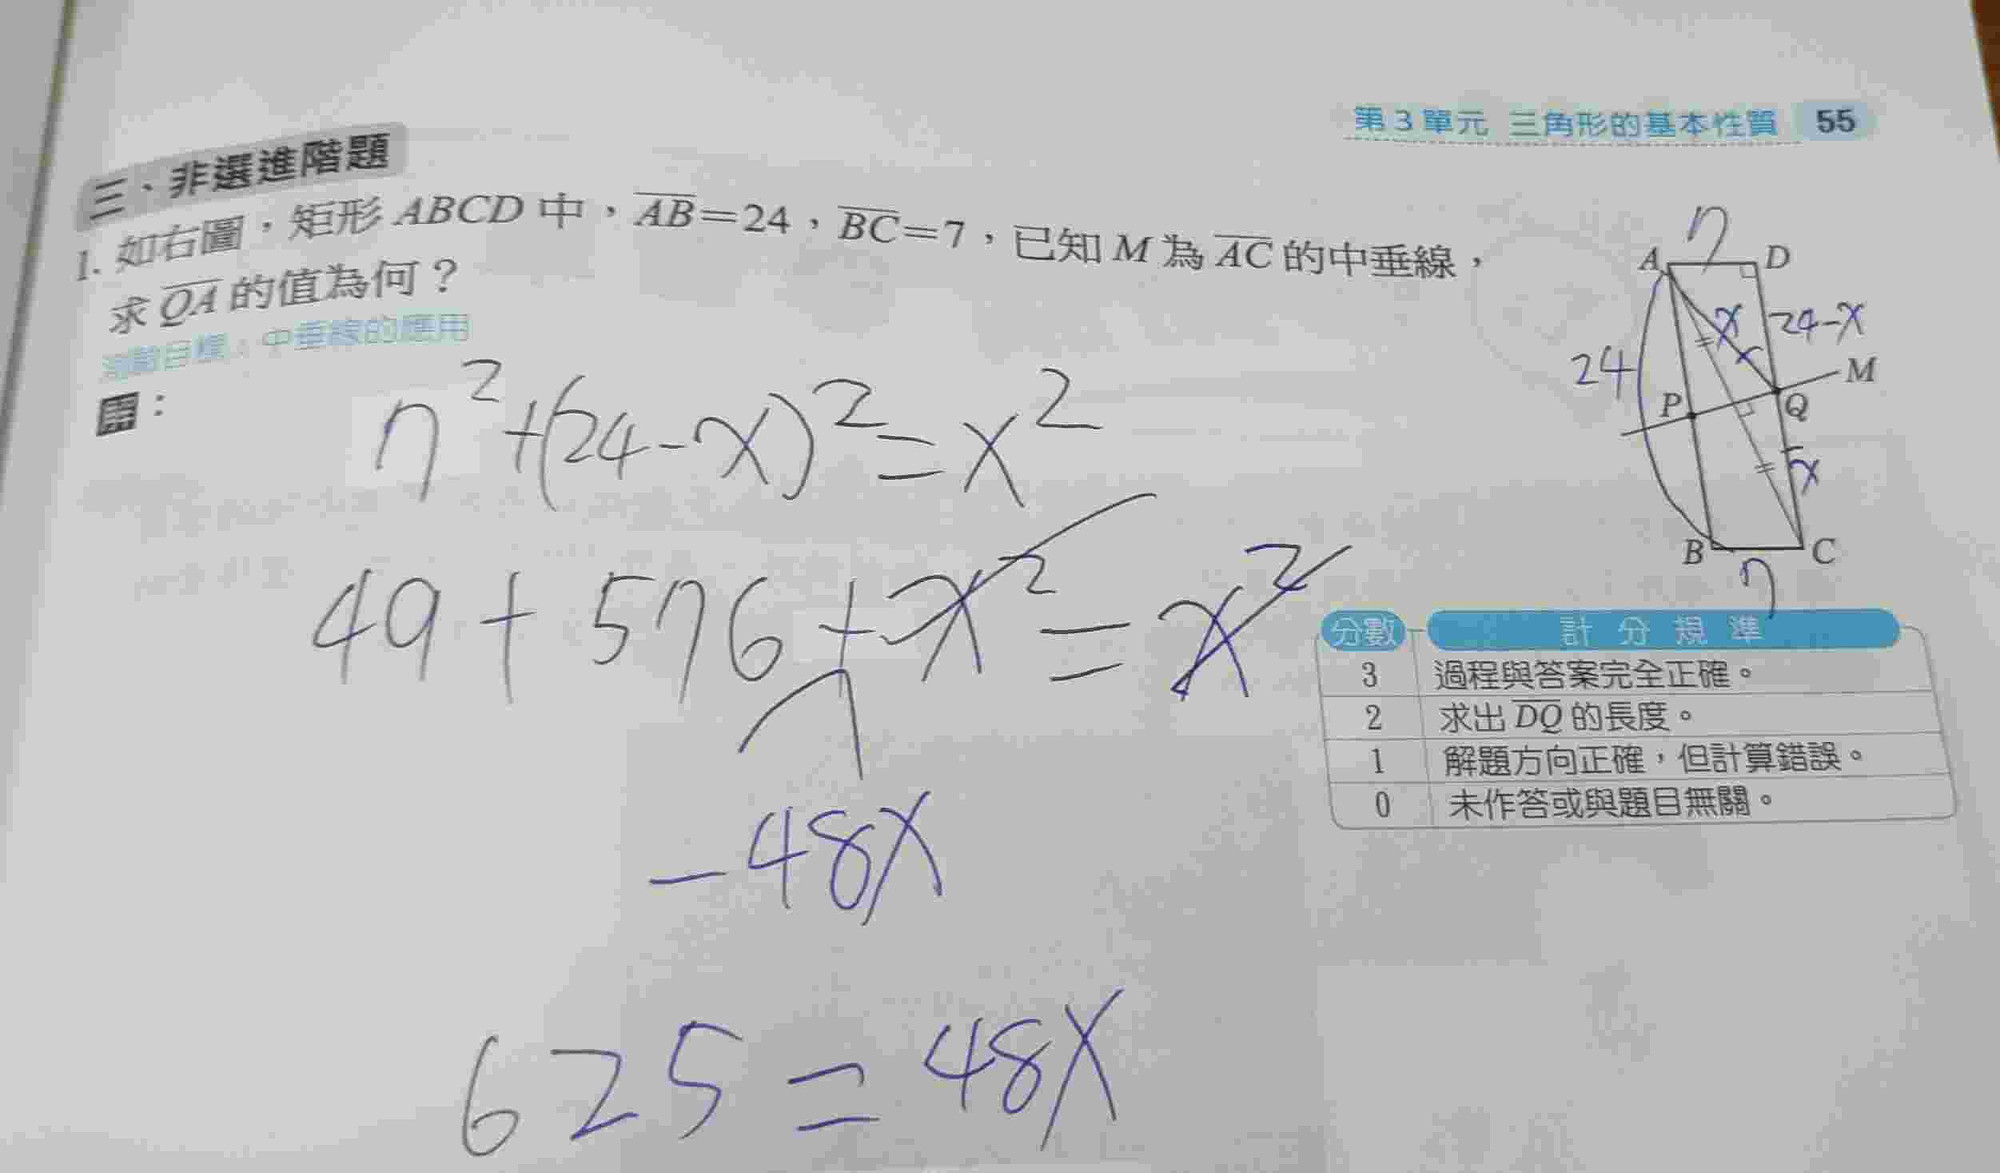 第3單元 三角形的基本性質 55
三、非選進階題
1. 如右圖，矩形 ABCD 中，AB=24，BC=7，已知 M 為 AC 的中垂線，
求 QA 的值為何？
測驗目標：中垂線的應用
解：
7² + (24-x)² = x²
49 + 576 + x² = x²
-48x
625 = 48x
7
A D
x 24-x
24
M
P Q
x
B C
7
分數 計分規準
3 過程與答案完全正確。
2 求出 DQ 的長度。
1 解題方向正確，但計算錯誤。
0 未作答或與題目無關。